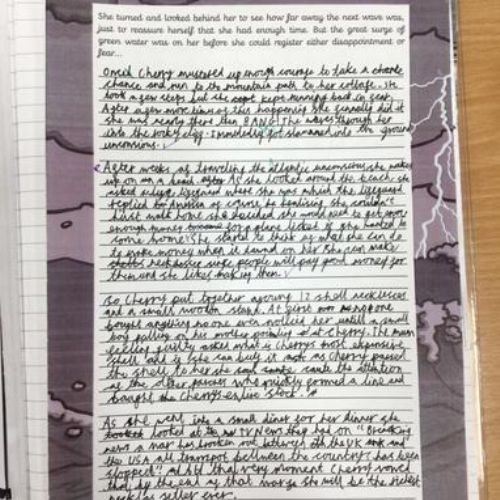 She turned and looked behind her to see how far away the next wave was,
just to reassure herself that she had enough time. But the great surge of
green water was on her before she could register either disappointment or
fear...
Once Cherry mustered up enough courage to take a
chance and run to the mountain path to her cottage. She
took a few steps but she kept running back in fear.
After a few more times of this happening she finnally did it
she was nearly there then BANG! The waves through her
into the rocky clif. Immediatly got slammed into the ground
unconsious.
After weeks of traveling the atlantic unconscious she makes
up on a beach. As she looked around the beach she
asked a lifeguard where she was which the lifeguard
replied to America of course. he realising she couldn't
just walk home she decided she would need to get
enough money for a plane ticket if she wanted to
come home. She started to think of what she can do
to make money when it dawned on her she can make
necklesses surge people will pay good money for
them and she likes making them.
So Cherry put together around 12 shell necklesses
and a small wooden stand. At first no one
bought anything no one even noticed her untill a small
boy pulling on his mother pointing at Cherry. The mum
feeling guilty asked what is Cherrys most expensive
shell and if she can buy it as Cherry passed
the shell to her she caute the attention
of the other who quickly formed a line and
bought the Cherrys entire stock.
As she went into a small diner for her dinner she
looked at the TV News they had on "Breaking
news a war has broken out between the UK and
the USA all transport between the countrys has been
stopped" at that very moment Cherry vowed
that by the end of that war she will be the richest
seller ever.